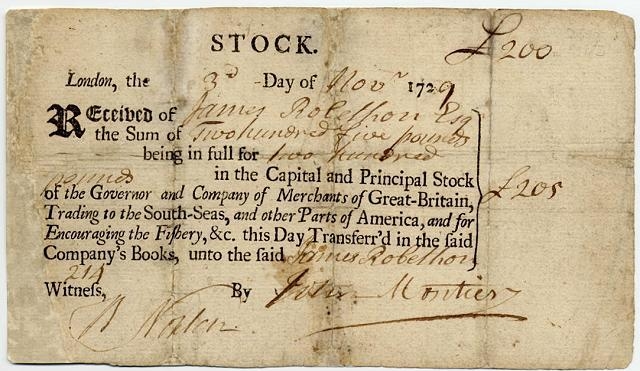 STOCK.
£200
London, the 3d Day of Novr 1729
Received of James Robethon Esq
the Sum of Two hundred five pounds
being in full for two hundred
pounds in the Capital and Principal Stock
of the Governor and Company of Merchants of Great-Britain,
£205
Trading to the South-Seas, and other Parts of America, and for
Encouraging the Fishery, &c. this Day Transferr'd in the said
Company's Books, unto the said James Robethon
Witness, By John